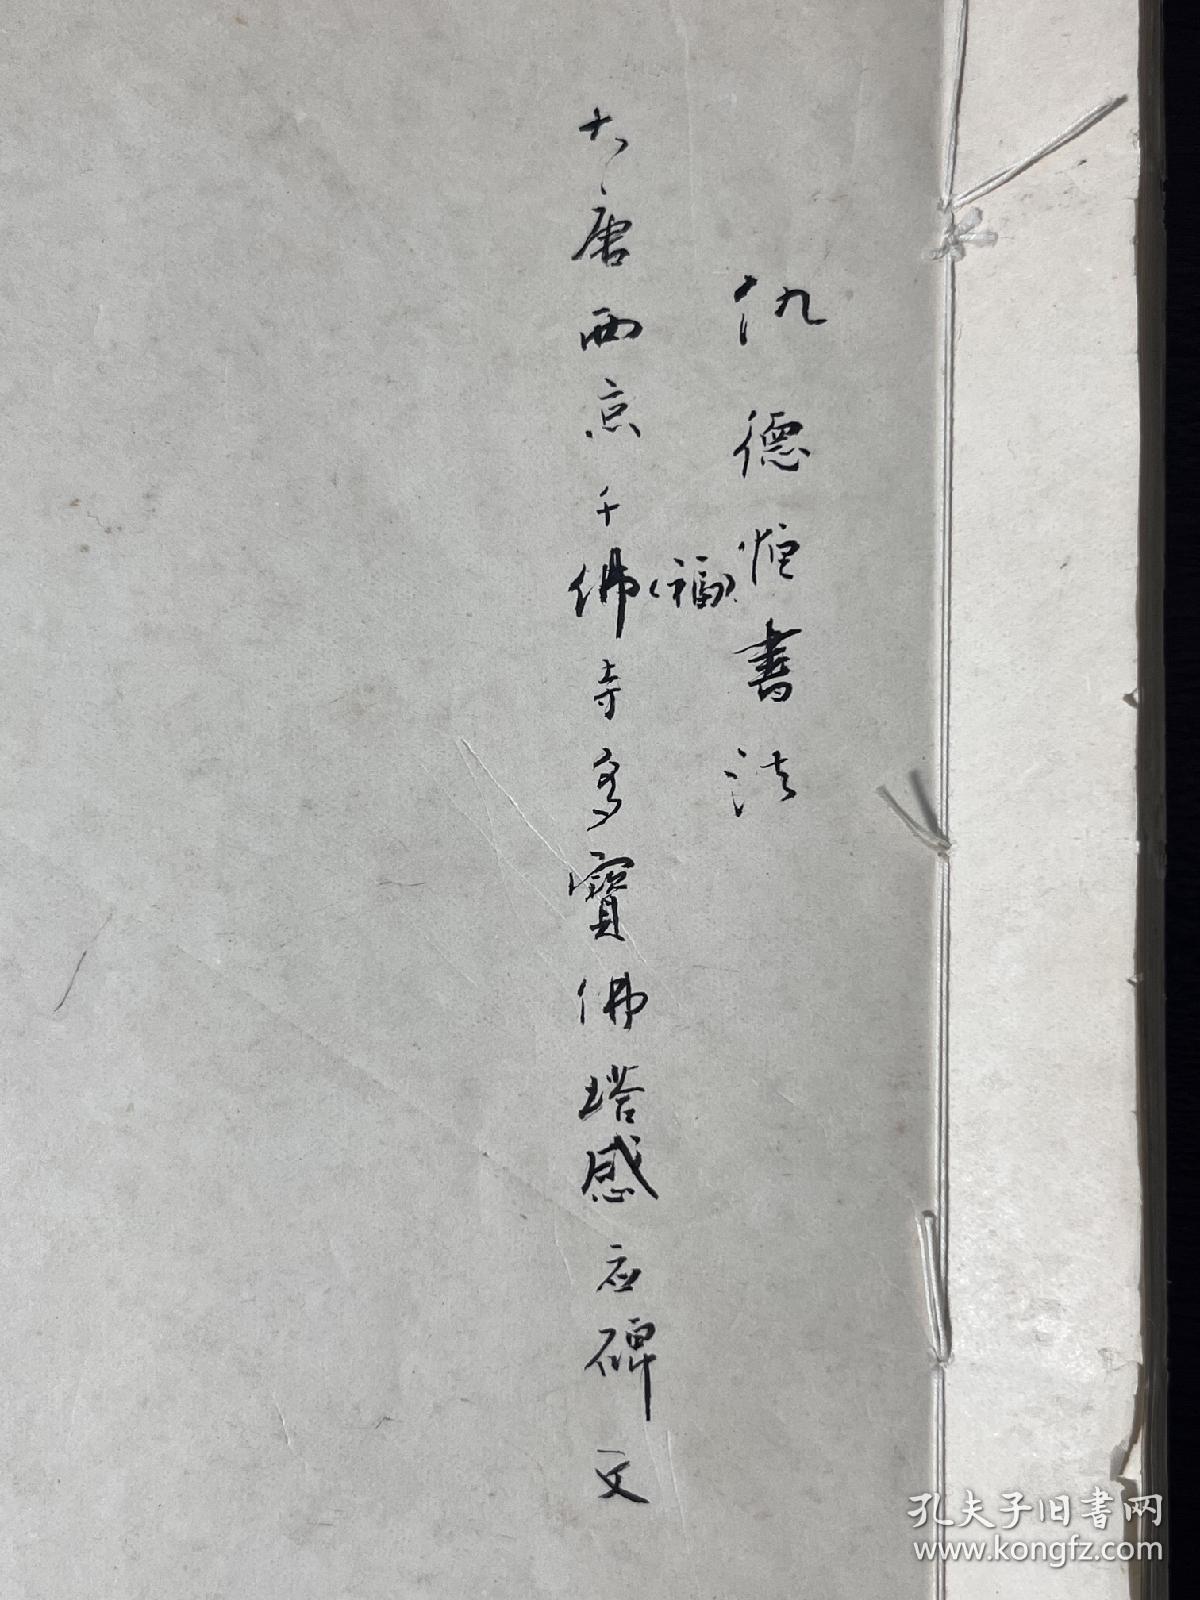 仇德恒書法
大唐西京千佛(福)寺多寶佛塔感应碑文
孔夫子旧書网
www.kongfz.com